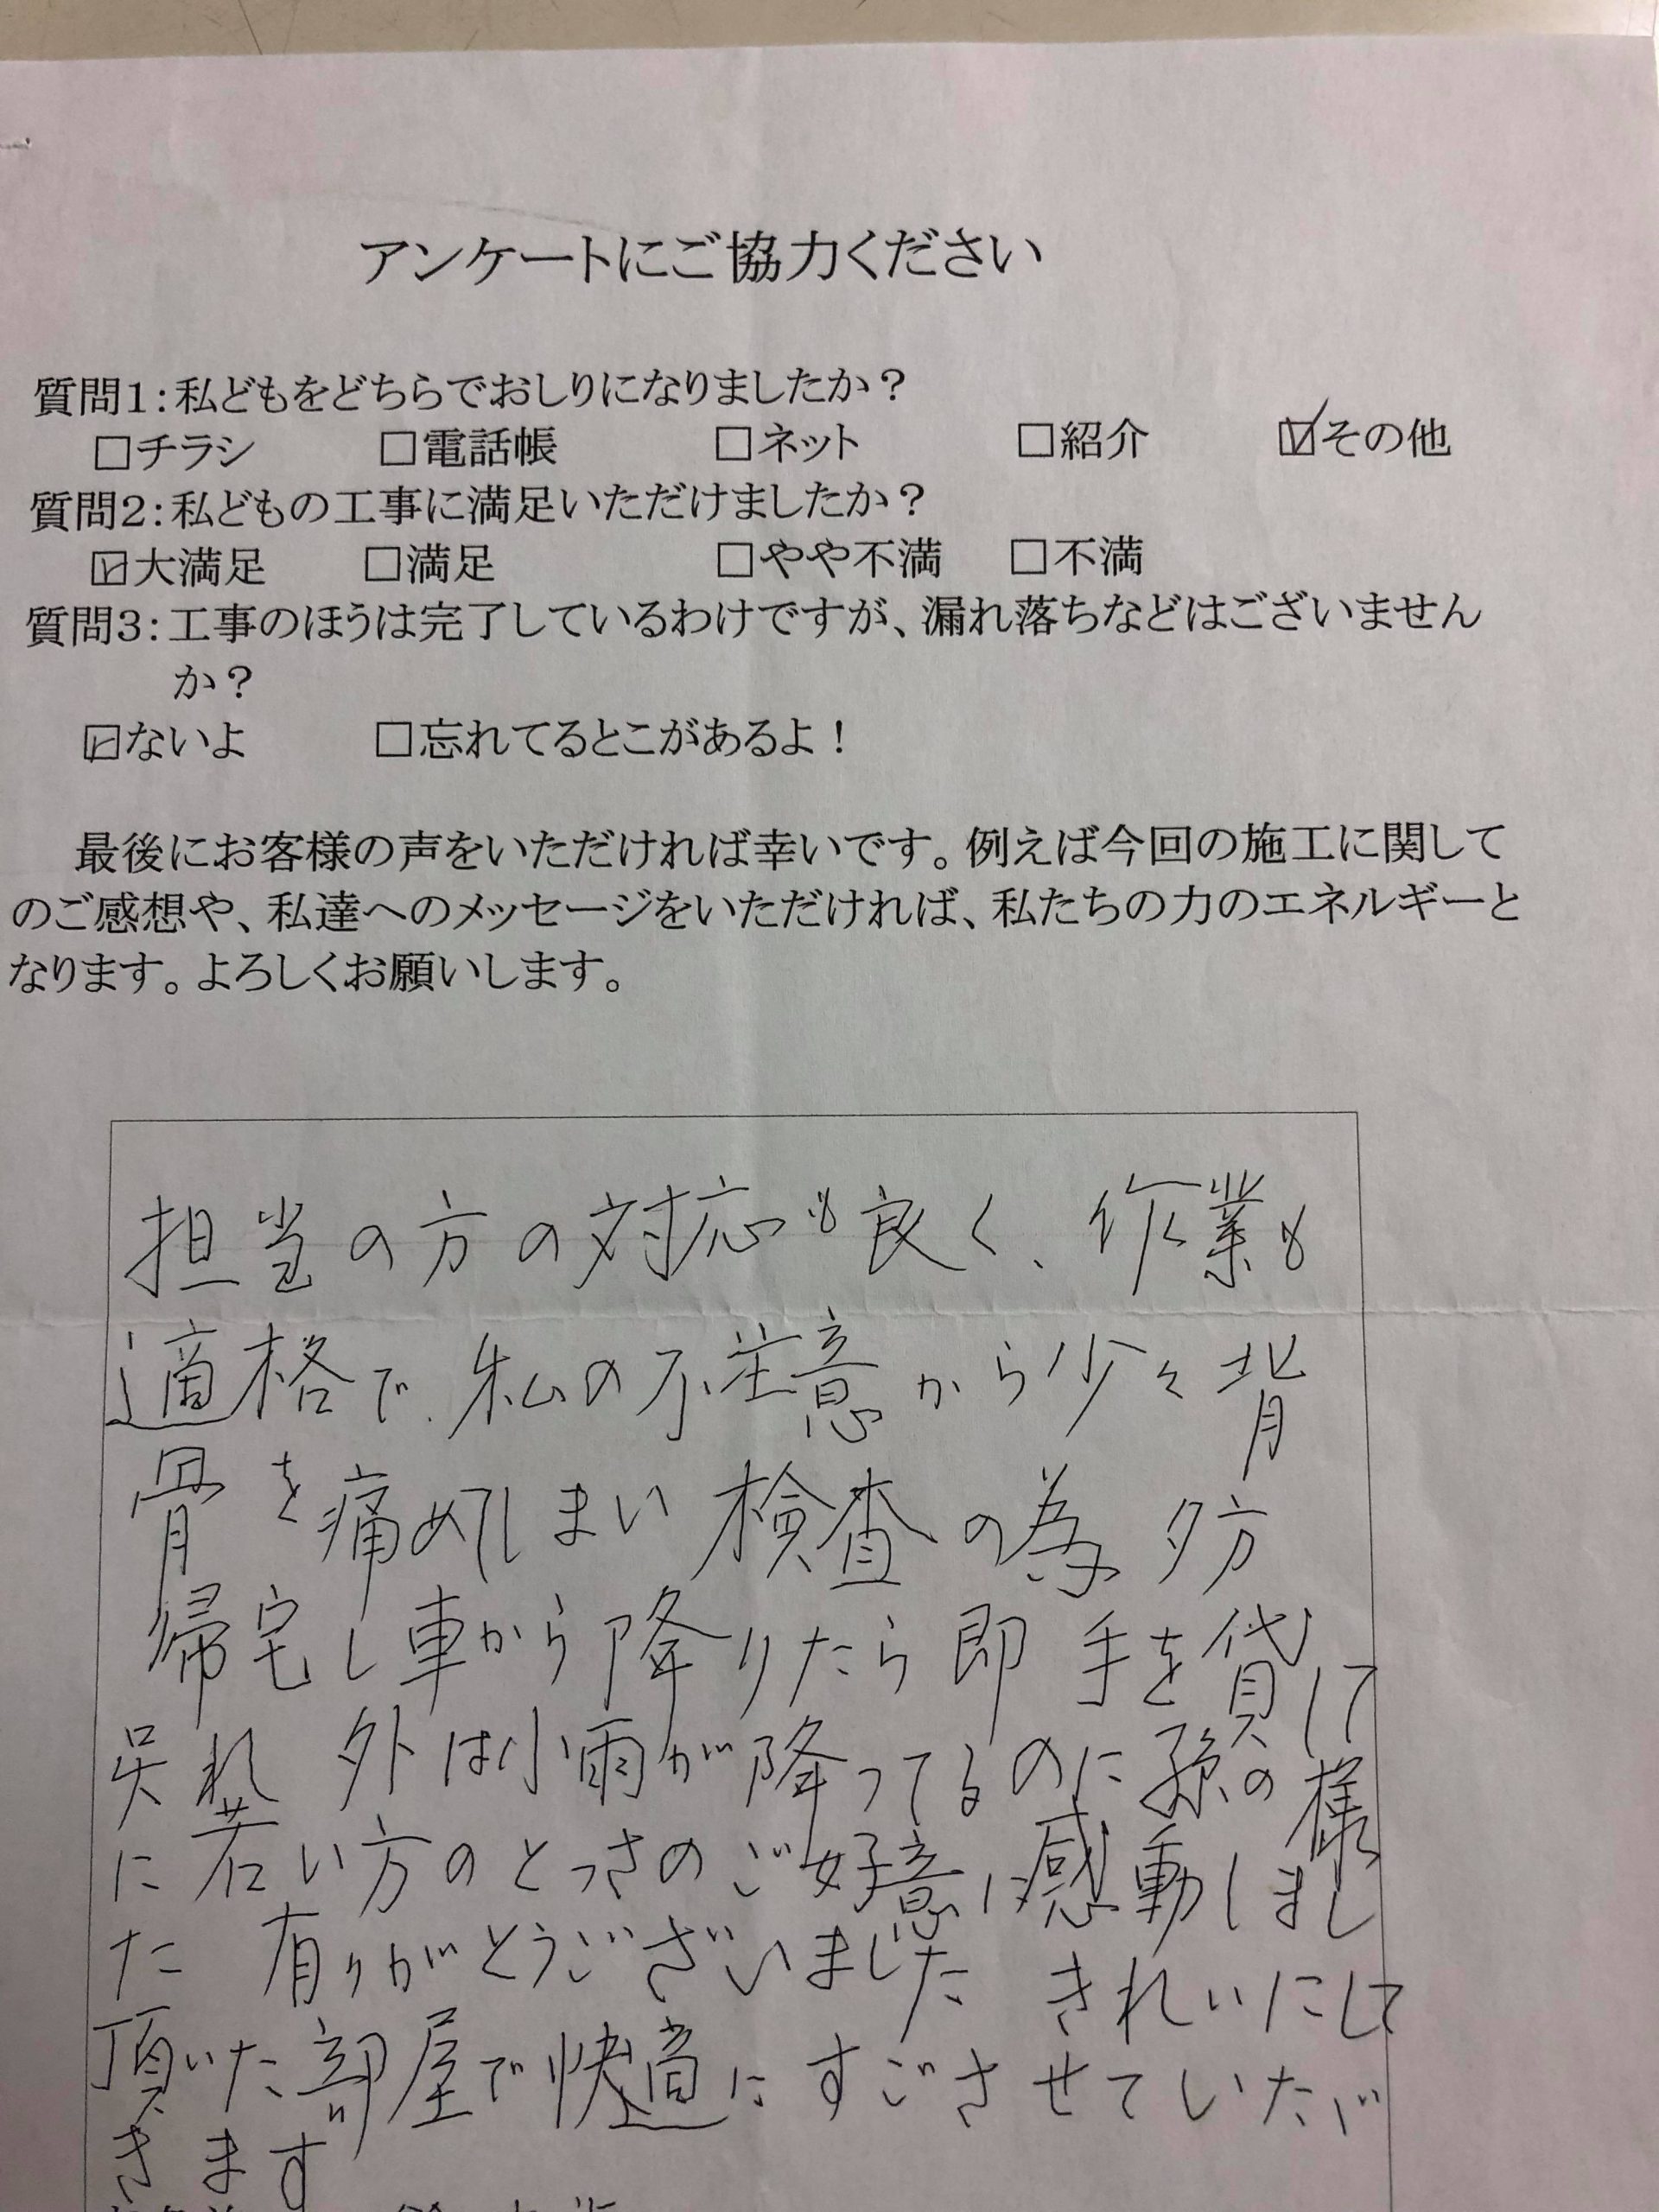 アンケートにご協力ください
質問1:私どもをどちらでおしりになりましたか?
□チラシ □電話帳 □ネット □紹介 ☑その他
質問2:私どもの工事に満足いただけましたか?
☑大満足 □満足 □やや不満 □不満
質問3:工事のほうは完了しているわけですが、漏れ落ちなどはございません
か?
☑ないよ □忘れてるとこがあるよ!
最後にお客様の声をいただければ幸いです。例えば今回の施工に関して
のご感想や、私達へのメッセージをいただければ、私たちの力のエネルギーと
なります。よろしくお願いします。
担当の方の対応も良く、作業も
適格で、私の不注意から少々背
骨を痛めてしまい検査の為夕方
帰宅し車から降りたら即手を貸して
呉れ 外は小雨が降ってるのに孫の様
に若い方のとっさのご好意に感動しまし
た 有りがとうございました きれいにして
頂いた部屋で快適にすごさせていただ
きます